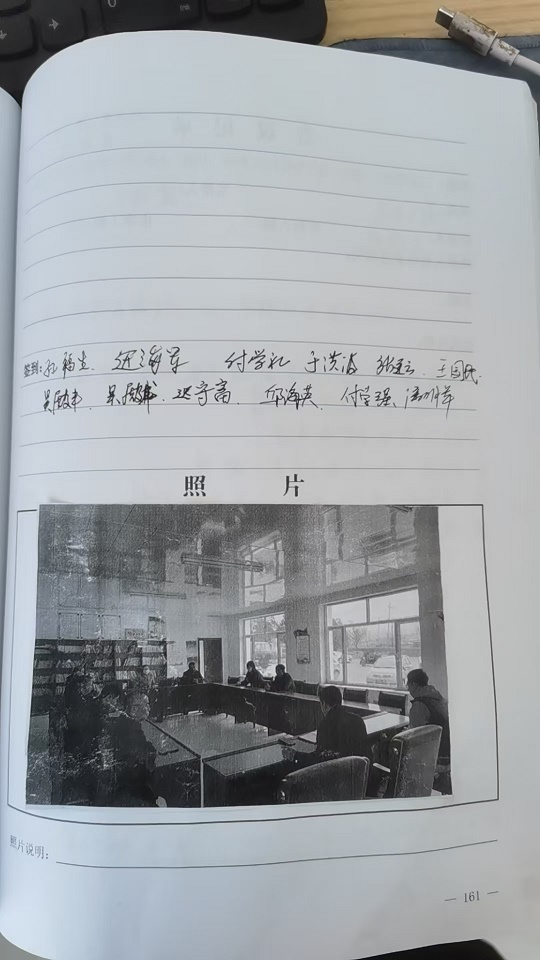 签到:孔福生 迟海军 付学礼 于洪海 张云 王国民
吴殿丰 吴殿武 迟守高 邱海英 付学强
照 片
照片说明:
— 161 —